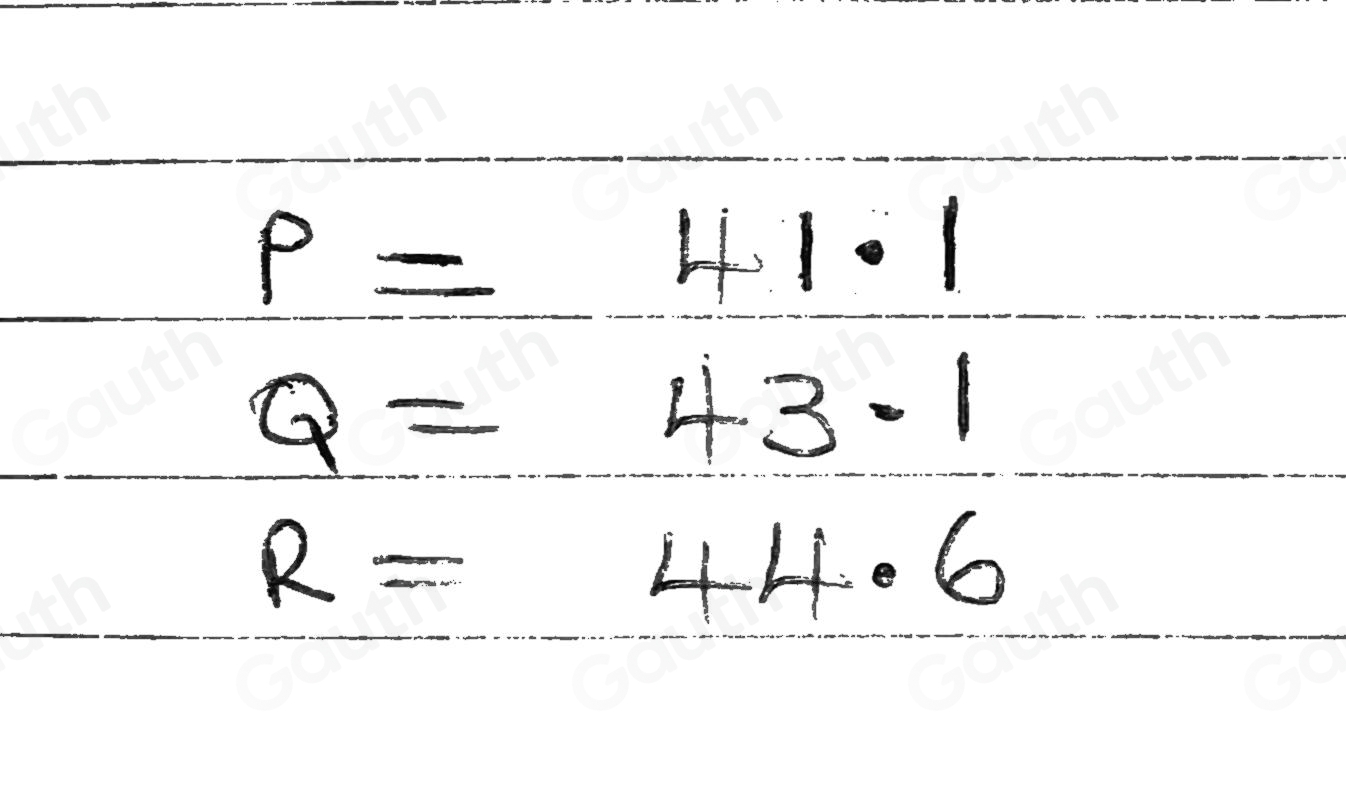 P = 41.1
Q = 43.1
R = 44.6